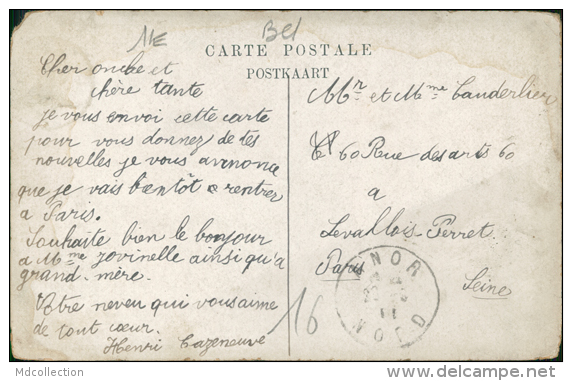 11E
Bel
CARTE POSTALE
POSTKAART
Cher oncle et
chère tante
je vous envoi cette carte
pour vous donnez de tés
nouvelles je vous annonce
que je vais bientôt rentrer
a Paris.
Souhaite bien le bonjour
a Mme Jovinelle ainsi qu'a
grand-mère.
Votre neveu qui vous aime
de tout cœur.
Henri Cazeneuve
Mr et Mme Vanderlier
60 Rue des arts 60
a
Levallois-Perret
Paris
Seine
16
NORD
Mdcollection
www.delcampe.net